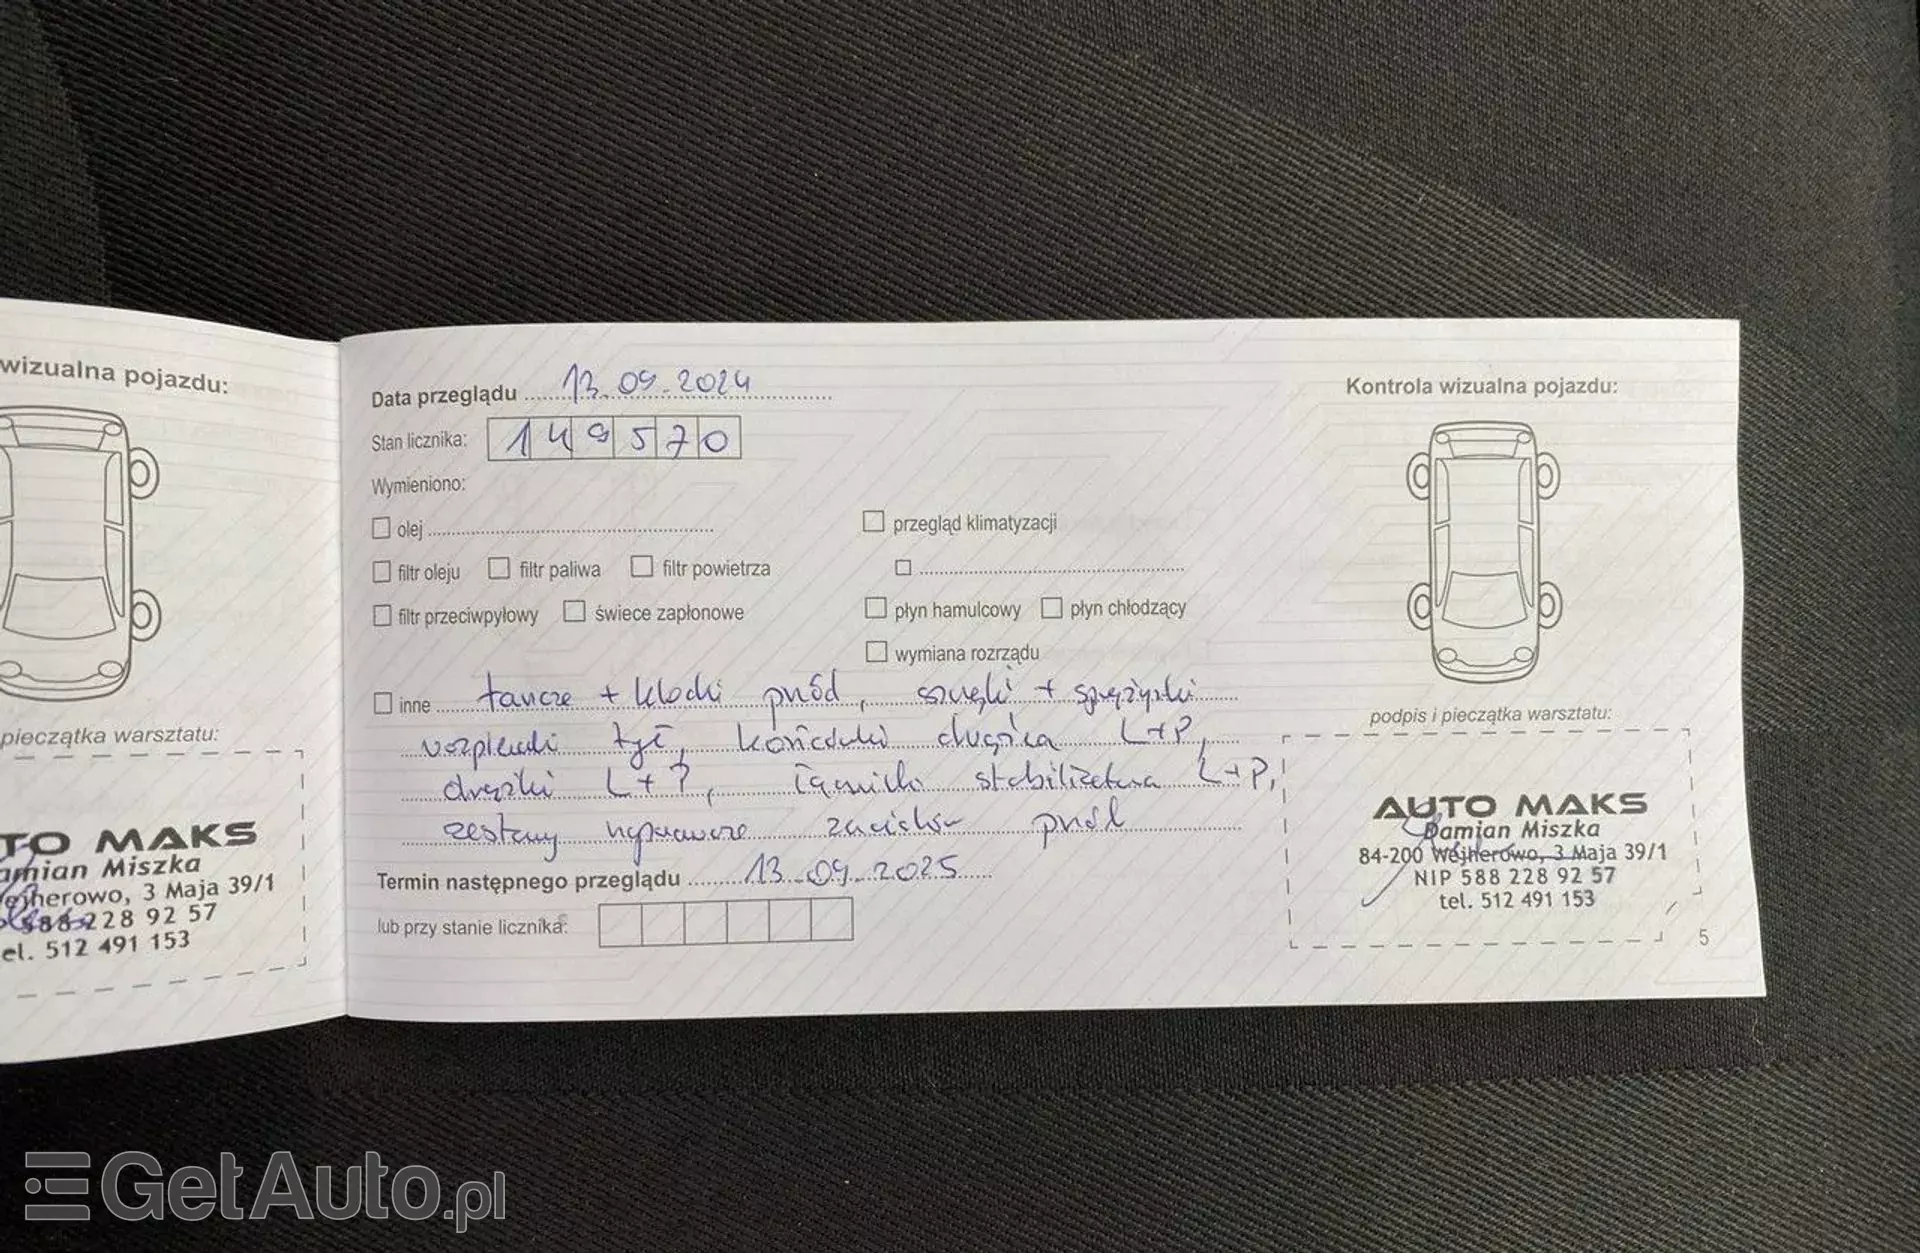 wizualna pojazdu:
pieczątka warsztatu:
TO MAKS
amian Miszka
ejherowo, 3 Maja 39/1
588 228 92 57
el. 512 491 153
Data przeglądu 13.09.2024
Stan licznika: 149570
Wymieniono:
olej
przegląd klimatyzacji
filtr oleju filtr paliwa filtr powietrza
filtr przeciwpyłowy świece zapłonowe
płyn hamulcowy płyn chłodzący
wymiana rozrządu
inne tarcze + klocki przód, szczęki + sprężynki
rozpieraki tył, końcówki drążka L+P,
drążki L+P, łączniki stabilizatora L+P,
zestawy naprawcze zacisków przód
Termin następnego przeglądu 13.09.2025
lub przy stanie licznika:
Kontrola wizualna pojazdu:
podpis i pieczątka warsztatu:
AUTO MAKS
Damian Miszka
84-200 Wejherowo, 3 Maja 39/1
NIP 588 228 92 57
tel. 512 491 153
5
GetAuto.pl